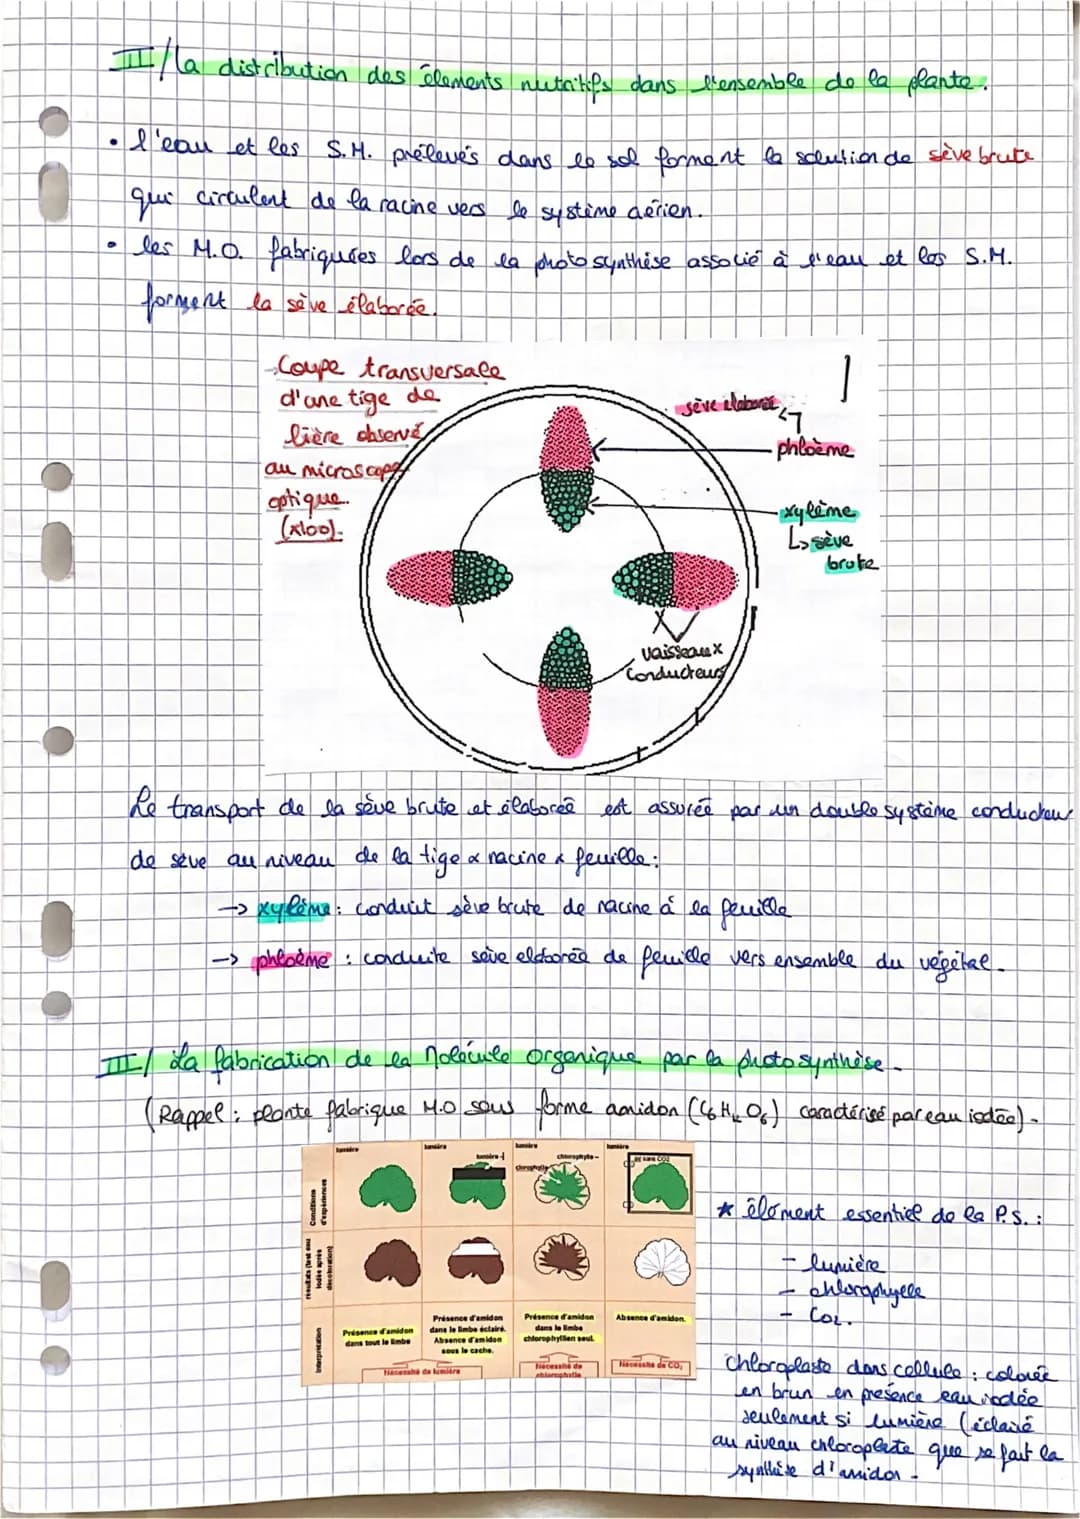 II/ La distribution des élements nutritifs dans l'ensemble de la plante.
• l'eau et les S.M. prélevés dans le sol forment la solution de sève brute
qui circulent de la racine vers le système aérien.
• les M.O. fabriquées lors de la photosynthèse associé à l'eau et les S.M.
forment la sève élaborée.
Coupe transversale
d'une tige de
lière observé
au microscope
optique.
(x100).
sève élaborée
phloème
xylème
↳ sève
brute
vaisseaux
conducteurs
Le transport de la sève brute et élaborée est assurée par un double système conducteur
de sève au niveau de la tige & racine & feuille :
→ xylème : conduit sève brute de racine à la feuille
→ phloème : conduite sève elaborée de feuille vers ensemble du végétal.
III/ La fabrication de la Molécule organique par la photosynthèse.
(Rappel : plante fabrique M.O sous forme amidon (C6 H12 O6) caractérisé par eau iodée).
lumière lumière lumière lumière
lumière chlorophylle air sans CO2
Conditions
d'expériences
résultats (test eau
iodée après
décoloration)
Interprétation
Présence d'amidon
dans tout le limbe
Présence d'amidon
dans le limbe éclairé.
Absence d'amidon
sous le cache.
Présence d'amidon
dans le limbe
chlorophyllien seul.
Absence d'amidon.
Nécessité de lumière
Nécessité de
chlorophylle
Nécessité de CO2
* élément essentiel de la P.S. :
- lumière
- chlorophylle
- CO2.
Chloroplaste dans cellule : colorée
en brun en présence eau iodée
seulement si lumière (éclairé
au niveau chloroplaste que se fait la
synthèse d'amidon.